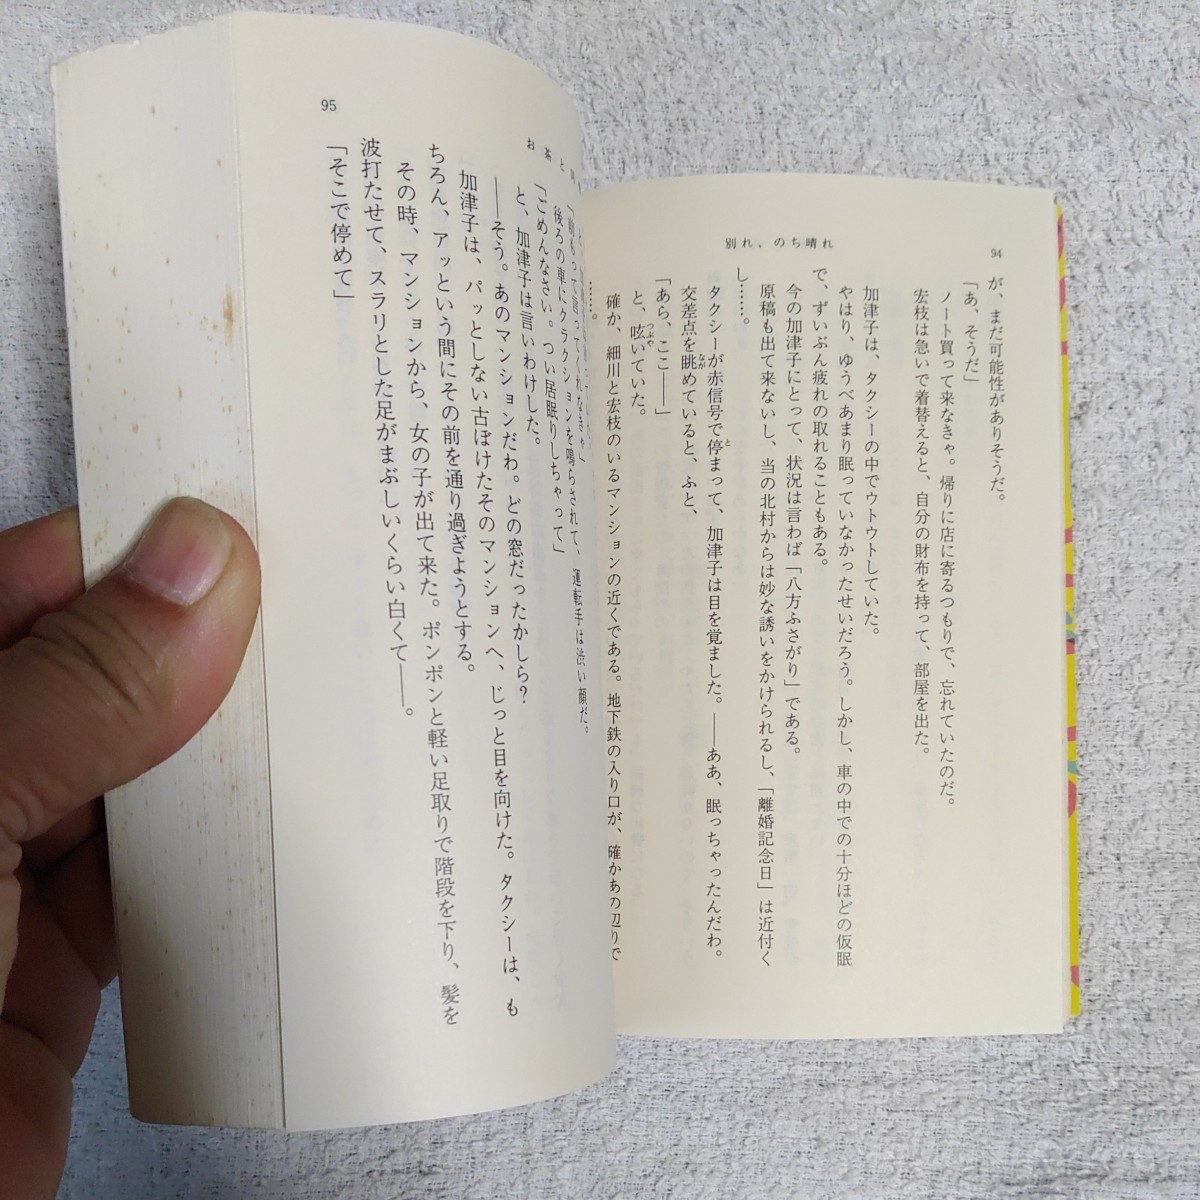 94
別れ、のち晴れ
が、まだ可能性がありそうだ。
「あ、そうだ」
ノート買って来なきゃ。帰りに店に寄るつもりで、忘れていたのだ。
宏枝は急いで着替えると、自分の財布を持って、部屋を出た。
加津子は、タクシーの中でウトウトしていた。
やはり、ゆうべあまり眠っていなかったせいだろう。しかし、車の中での十分ほどの仮眠
で、ずいぶん疲れの取れることもある。
今の加津子にとって、状況は言わば「八方ふさがり」である。
原稿も出て来ないし、当の北村からは妙な誘いをかけられるし、「離婚記念日」は近付く
し……。
タクシーが赤信号で停まって、加津子は目を覚ました。――ああ、眠っちゃったんだわ。
交差点を眺めていると、ふと、
「あら、ここ――」
と、呟いていた。
確か、細川と宏枝のいるマンションの近くである。地下鉄の入り口が、確かあの辺りで
……。
95
お茶と
って言ってくれなきゃ」
後ろの車にクラクションを鳴らされて、運転手は渋い顔だ。
「ごめんなさい。つい居眠りしちゃって」
と、加津子は言いわけした。
――そう。あのマンションだわ。どの窓だったかしら？
加津子は、パッとしない古ぼけたそのマンションへ、じっと目を向けた。タクシーは、も
ちろん、アッという間にその前を通り過ぎようとする。
その時、マンションから、女の子が出て来た。ポンポンと軽い足取りで階段を下り、髪を
波打たせて、スラリとした足がまぶしいくらい白くて――。
「そこで停めて」